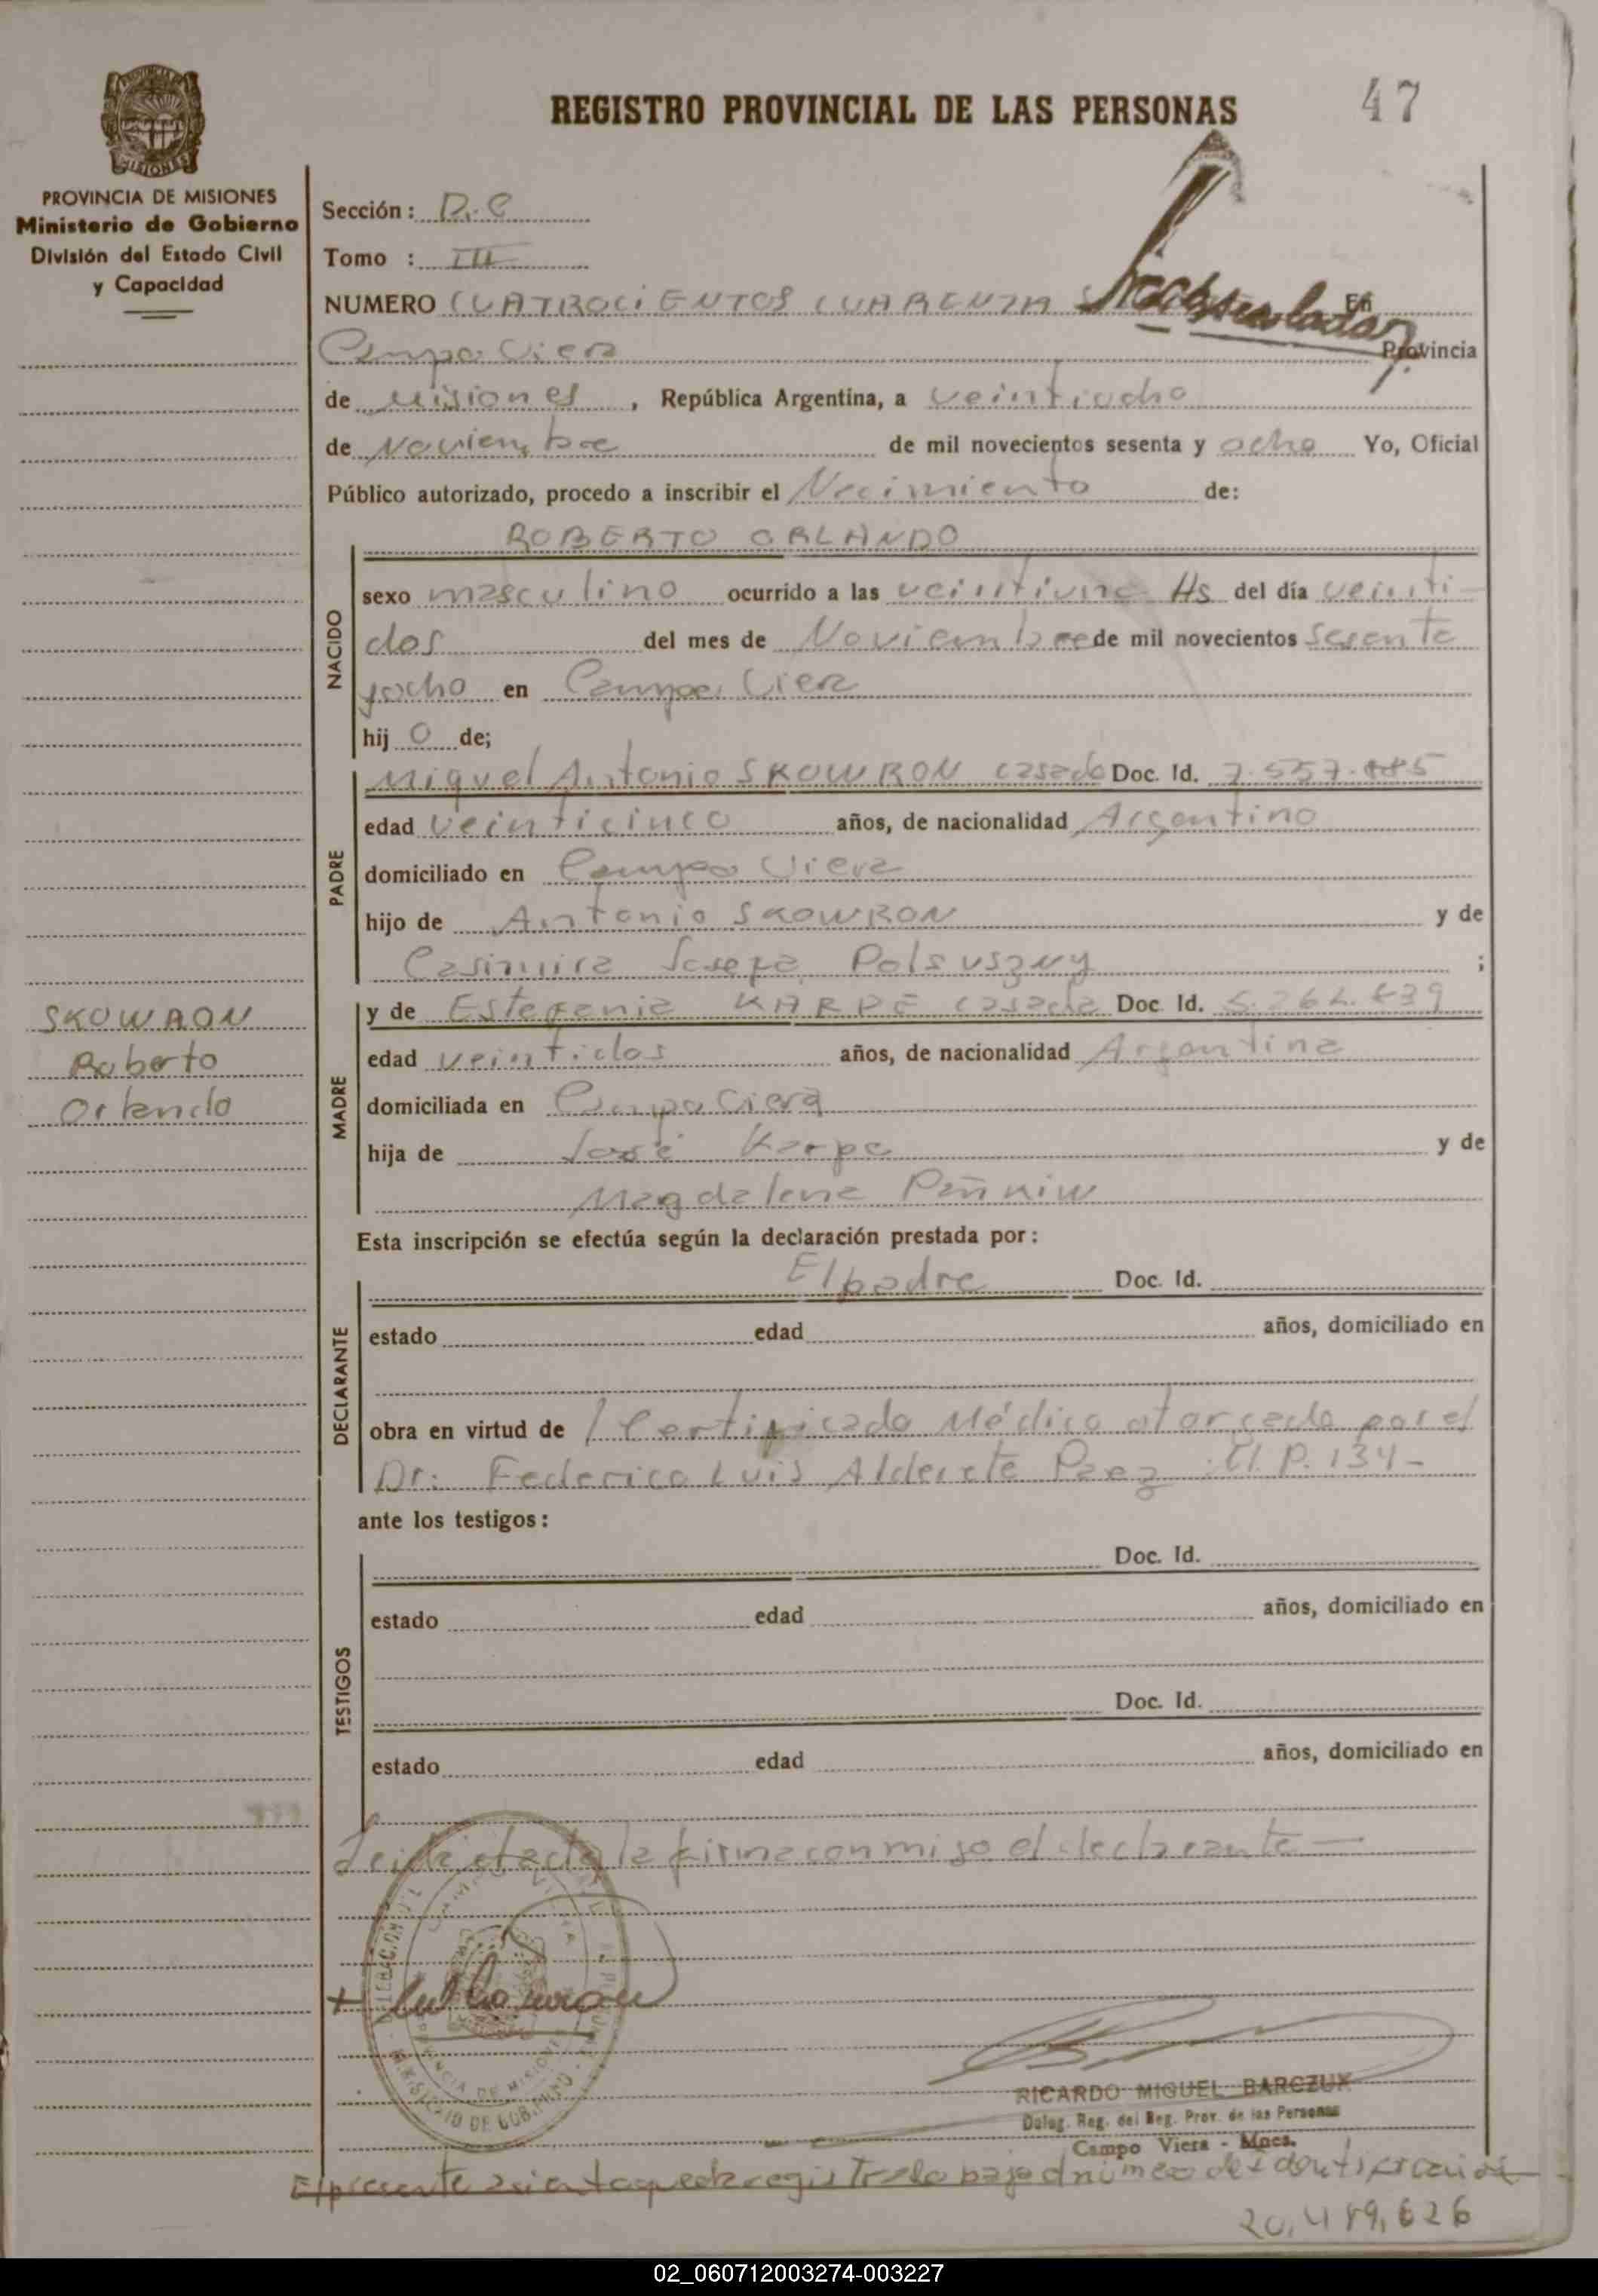 47
REGISTRO PROVINCIAL DE LAS PERSONAS
PROVINCIA DE MISIONES
Ministerio de Gobierno
División del Estado Civil
y Capacidad
Sección: D.C
Tomo : III
NUMERO CUATROCIENTOS CUARENTA En
Campo Viera Provincia
de Misiones, República Argentina, a veintiocho
de Noviembre de mil novecientos sesenta y ocho Yo, Oficial
Público autorizado, procedo a inscribir el Nacimiento de:
ROBERTO ORLANDO
NACIDO
sexo masculino ocurrido a las veintiuna Hs del día veinti-
dos del mes de Noviembre de mil novecientos sesenta
yocho en Campo Viera
hij o de;
PADRE
Miguel Antonio SKOWRON casado Doc. Id.
edad veinticinco años, de nacionalidad Argentino
domiciliado en Campo Viera
hijo de Antonio SKOWRON y de
Casimira Josefa ;
SKOWRON
Roberto
Orlando
MADRE
y de Estefania KARPE casada Doc. Id.
edad veintidos años, de nacionalidad Argentina
domiciliada en Campo Viera
hija de José Karpe y de
Magdalena
Esta inscripción se efectúa según la declaración prestada por:
DECLARANTE
El padre Doc. Id.
estado edad años, domiciliado en
obra en virtud de / Certificado Médico otorgado por el
Dr. Federico Luis Alderete Paez M.P. 134-
ante los testigos:
TESTIGOS
Doc. Id.
estado edad años, domiciliado en
Doc. Id.
estado edad años, domiciliado en
Leida el acta la firma conmigo el declarante —
RICARDO MIGUEL BARCZUK
Deleg. Reg. del Reg. Prov. de las Personas
Campo Viera - Mnes.
El presente asiento queda registrado bajo el número de identificación
20,489,626
02_060712003274-003227